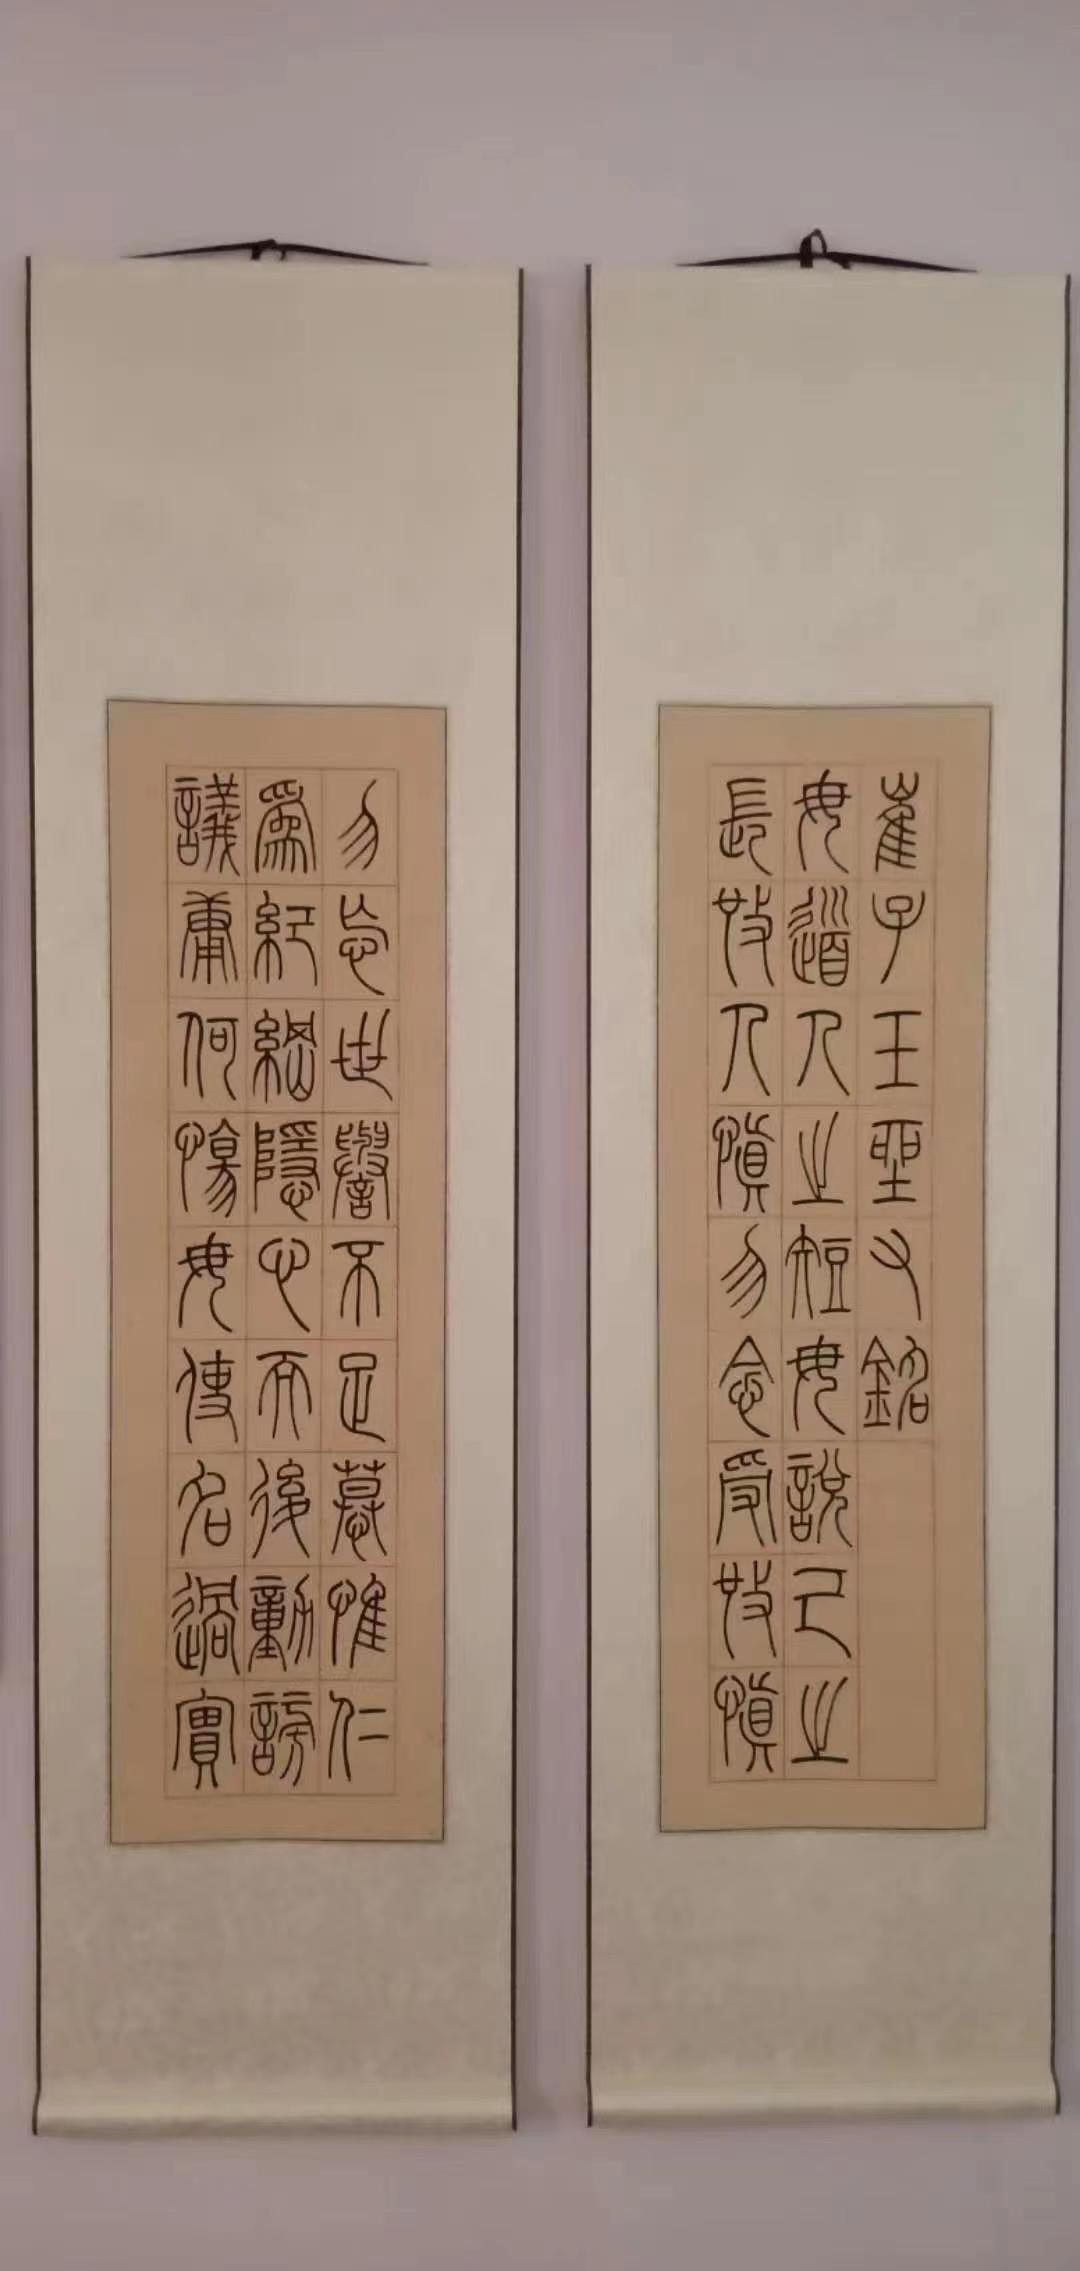 崔子玉坐又銘
毋道人之短毋說己之
長𢻱人慎勿念受𢻱慎
勿忘世譽不足慕惟仁
爲紀綱隱心而後動謗
議庸何慯毋使名過實